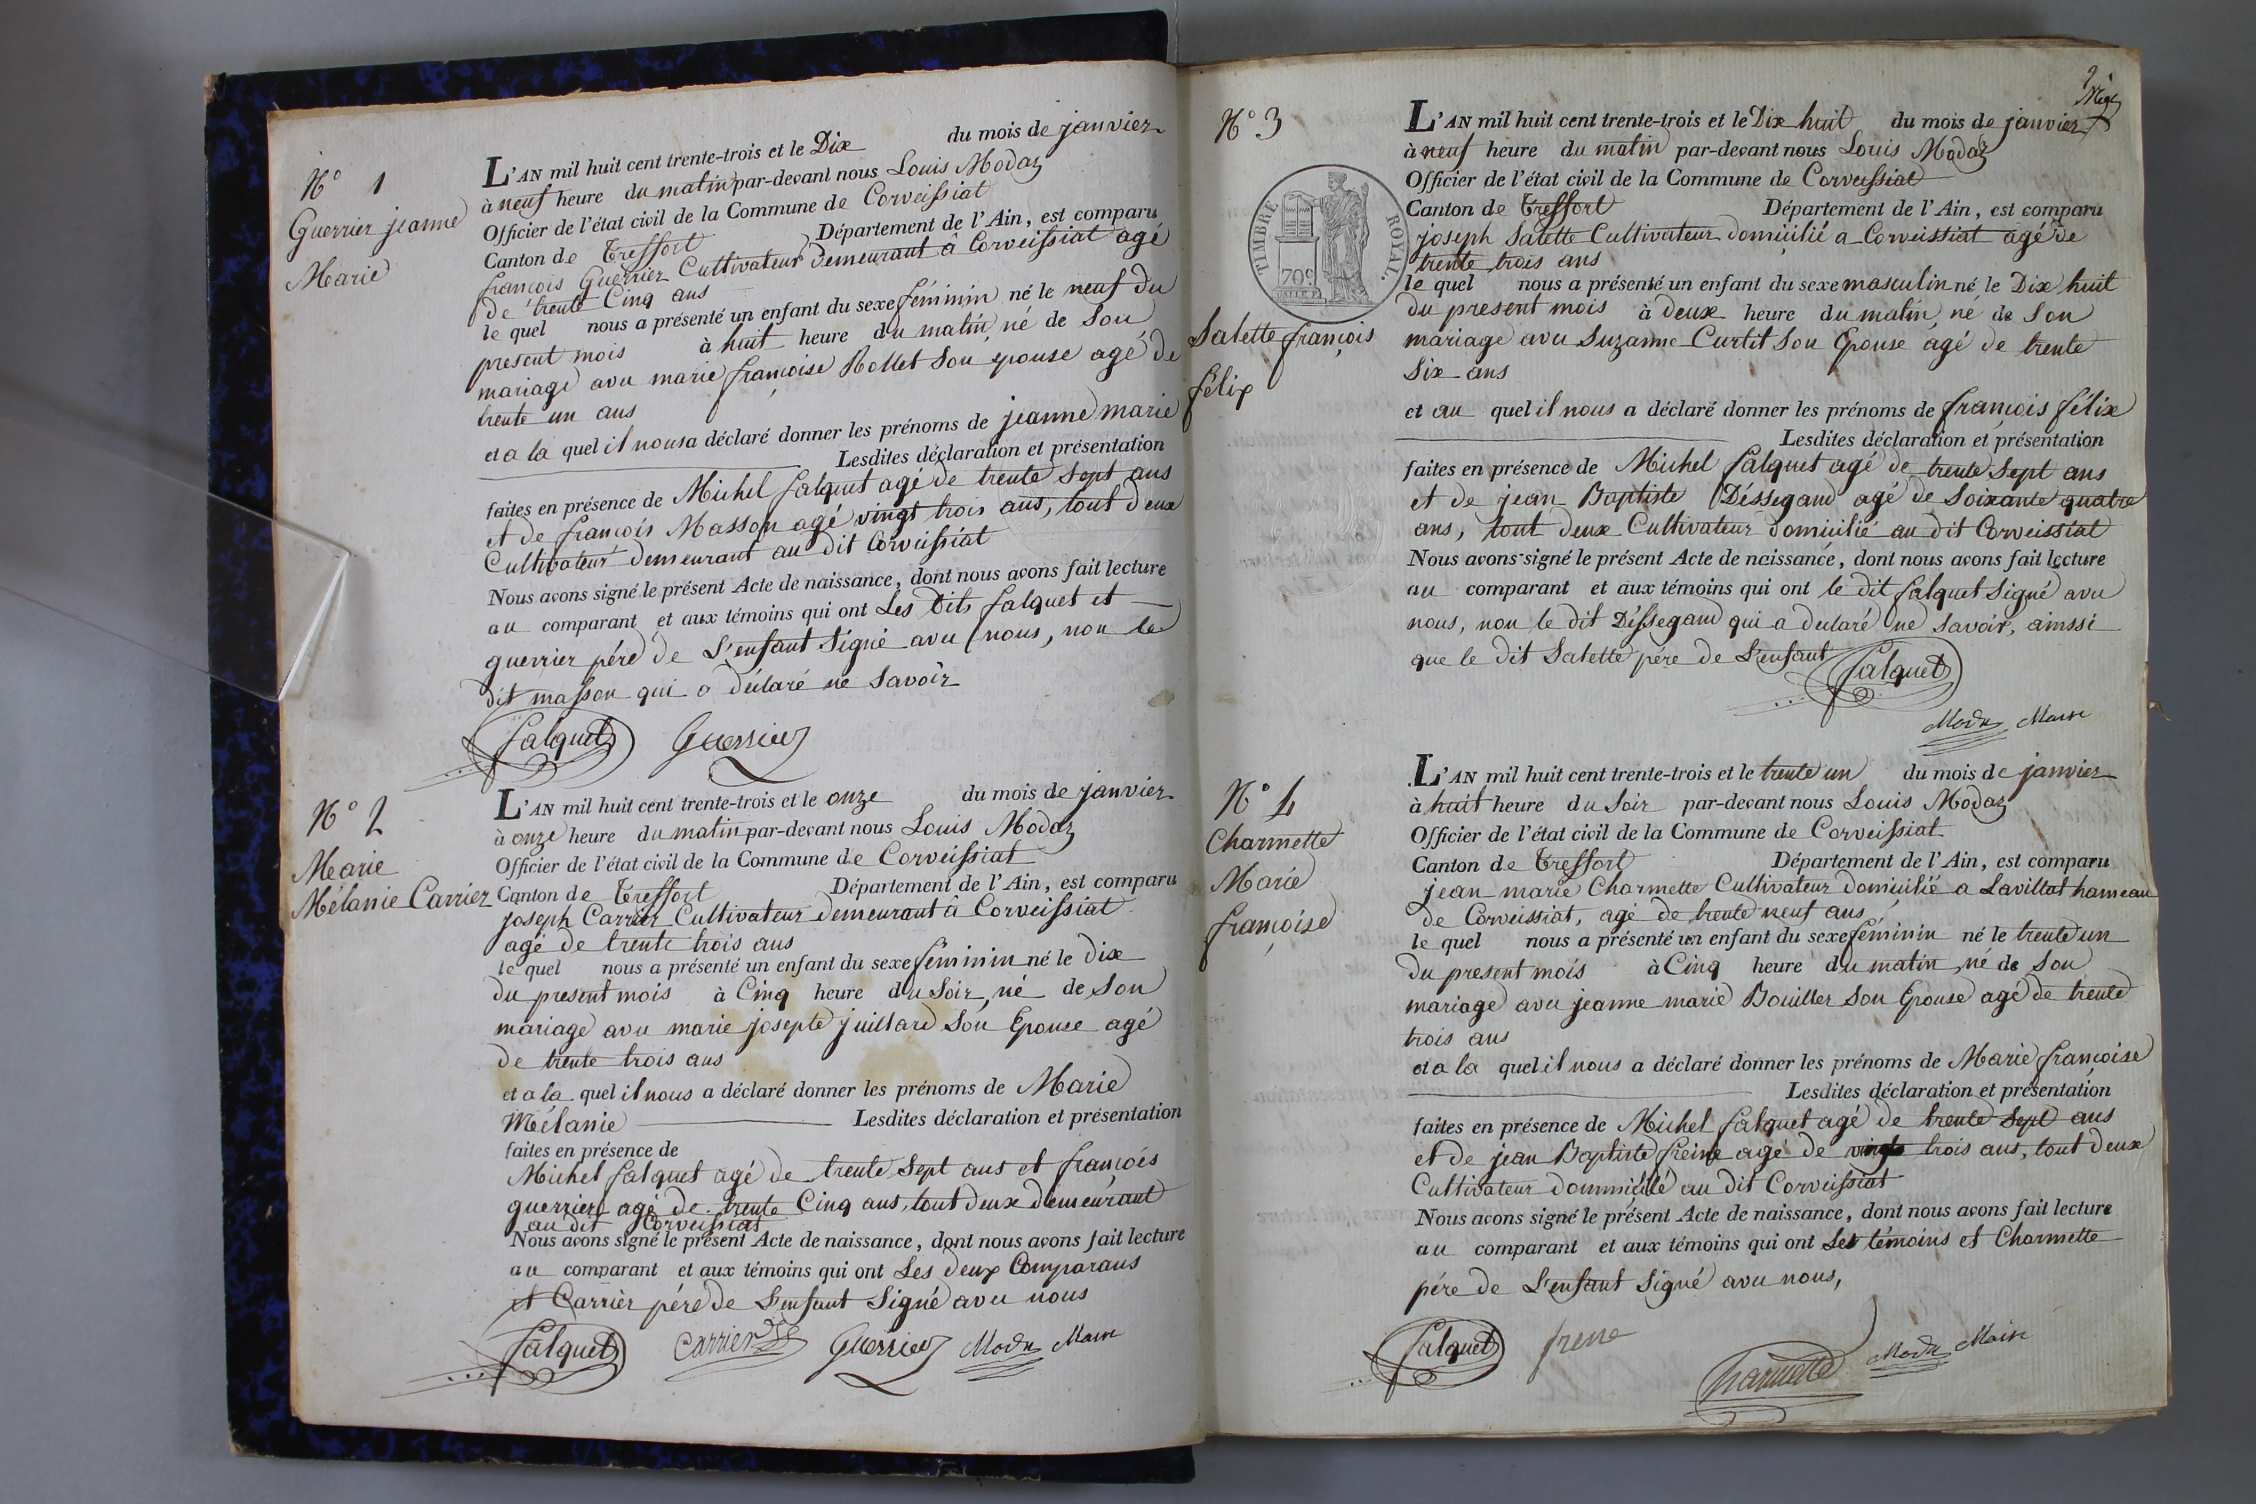 N° 1
Guerrier jeanne
Marie
L'AN mil huit cent trente-trois et le Dix du mois de janvier
à neuf heure du matin par-devant nous Louis Modaz
Officier de l'état civil de la Commune de Corveissiat
Canton de Treffort Département de l'Ain, est comparu
françois Guerrier Cultivateur demeurant à Corveissiat agé
de trente Cinq ans
le quel nous a présenté un enfant du sexe féminin né le neuf du
present mois à huit heure du matin, né de Son
mariage avec marie françoise Rollet Son epouse agé de
trente un ans
et a la quel il nous a déclaré donner les prénoms de jeanne marie
Lesdites déclaration et présentation
faites en présence de Michel falquet agé de trente Sept ans
et de françois Masson agé vingt trois ans, tout deux
Cultivateur demeurant au dit Corveissiat
Nous avons signé le présent Acte de naissance, dont nous avons fait lecture
au comparant et aux témoins qui ont Les Dits falquet et
guerrier pére de L'enfant Signé avec nous, non le
dit masson qui a déclaré ne Savoir
falquet Guerrier
N° 2
Marie
Mélanie Carrier
L'AN mil huit cent trente-trois et le onze du mois de janvier
à onze heure du matin par-devant nous Louis Modaz
Officier de l'état civil de la Commune de Corveissiat
Canton de Treffort Département de l'Ain, est comparu
joseph Carrier Cultivateur demeurant à Corveissiat
agé de trente trois ans
le quel nous a présenté un enfant du sexe féminin né le dix
du present mois à Cinq heure du Soir, né de Son
mariage avec marie josepte juillard Son Epouse agé
de trente trois ans
et a la quel il nous a déclaré donner les prénoms de Marie
Mélanie Lesdites déclaration et présentation
faites en présence de
Michel falquet agé de trente Sept ans et françois
guerrier agé de trente Cinq ans, tout deux demeurant
au dit Corveissiat
Nous avons signé le présent Acte de naissance, dont nous avons fait lecture
au comparant et aux témoins qui ont Les deux Comparans
et Carrièr pére de L'enfant Signé avec nous
falquet Carrier Guerrier Modu Maire
2
N° 3
TIMBRE ROYAL.
70c
Salette françois
félix
L'AN mil huit cent trente-trois et le Dix huit du mois de janvier
à neuf heure du matin par-devant nous Louis Modaz
Officier de l'état civil de la Commune de Corveissiat
Canton de Treffort Département de l'Ain, est comparu
joseph Salette Cultivateur domicilié a Corveissiat agé de
trente trois ans
le quel nous a présenté un enfant du sexe masculin né le Dix huit
du present mois à deux heure du matin, né de Son
mariage avec Suzanne Curtit Son Epouse agé de trente
Six ans
et au quel il nous a déclaré donner les prénoms de françois félix
Lesdites déclaration et présentation
faites en présence de Michel falquet agé de trente Sept ans
et de jean Baptiste Déssegaud agé de Soixante quatre
ans, tout deux Cultivateur domicilié au dit Corveissiat
Nous avons signé le présent Acte de naissance, dont nous avons fait lecture
au comparant et aux témoins qui ont le dit falquet Signé avec
nous, non le dit Déssegaud qui a declaré ne Savoir, ainssi
que le dit Salette pére de L'enfant
falquet
Modu Maire
N° 4
Charmette
Marie
françoise
L'AN mil huit cent trente-trois et le trente un du mois de janvier
à huit heure du Soir par-devant nous Louis Modaz
Officier de l'état civil de la Commune de Corveissiat
Canton de Treffort Département de l'Ain, est comparu
jean marie Charmette Cultivateur domicilié a Lavillat hameau
de Corveissiat, agé de trente neuf ans
le quel nous a présenté un enfant du sexe féminin né le trente un
du present mois à Cinq heure du matin, né de Son
mariage avec jeanne marie Bouiller Son Epouse agé de trente
trois ans
et a la quel il nous a déclaré donner les prénoms de Marie françoise
Lesdites déclaration et présentation
faites en présence de Michel falquet agé de trente Sept ans
et de jean Baptiste freine agé de vingt trois ans, tout deux
Cultivateur dommicilié au dit Corveissiat
Nous avons signé le présent Acte de naissance, dont nous avons fait lecture
au comparant et aux témoins qui ont Les témoins et Charmette
pére de L'enfant Signé avec nous,
falquet frene Charmette Modu Maire